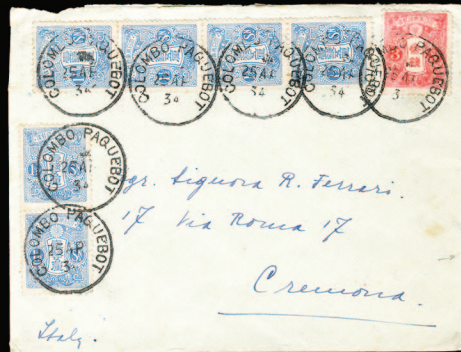 COLOMBO PAQUEBOT
25 AP
34
COLOMBO PAQUEBOT
25 AP
34
COLOMBO PAQUEBOT
25 AP
34
COLOMBO PAQUEBOT
34
COLOMBO PAQUEBOT
3
COLOMBO PAQUEBOT
25 AP
34
COLOMBO PAQUEBOT
25 AP
34
gr. Signora R. Ferrari.
17 Via Roma 17
Cremona.
Italy.